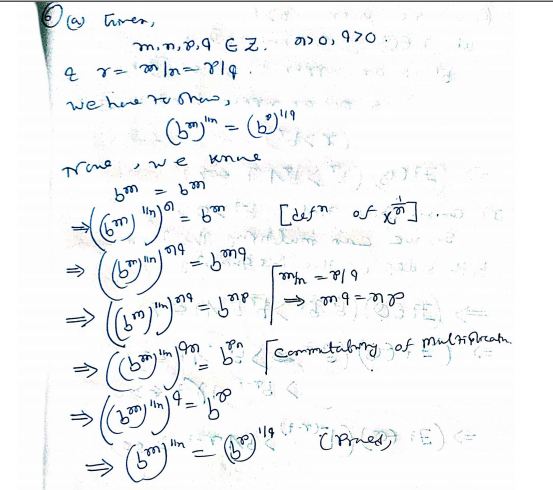 6 (a) Given,
m, n, p, q ∈ Z. n>0, q>0.
& r = m/n = p/q
we have to show,
(b^m)^{1/n} = (b^p)^{1/q}
Now, we know
b^m = b^m
⇒ ((b^m)^{1/n})^n = b^m [def^n of x^{1/n}].
⇒ ((b^m)^{1/n})^{nq} = b^{mq}
⇒ ((b^m)^{1/n})^{nq} = b^{np} [m/n = p/q
⇒ mq = np
⇒ ((b^m)^{1/n})^{qn} = b^{pn} [commutability of multiplication
⇒ ((b^m)^{1/n})^q = b^p
⇒ (b^m)^{1/n} = (b^p)^{1/q} (Proved)